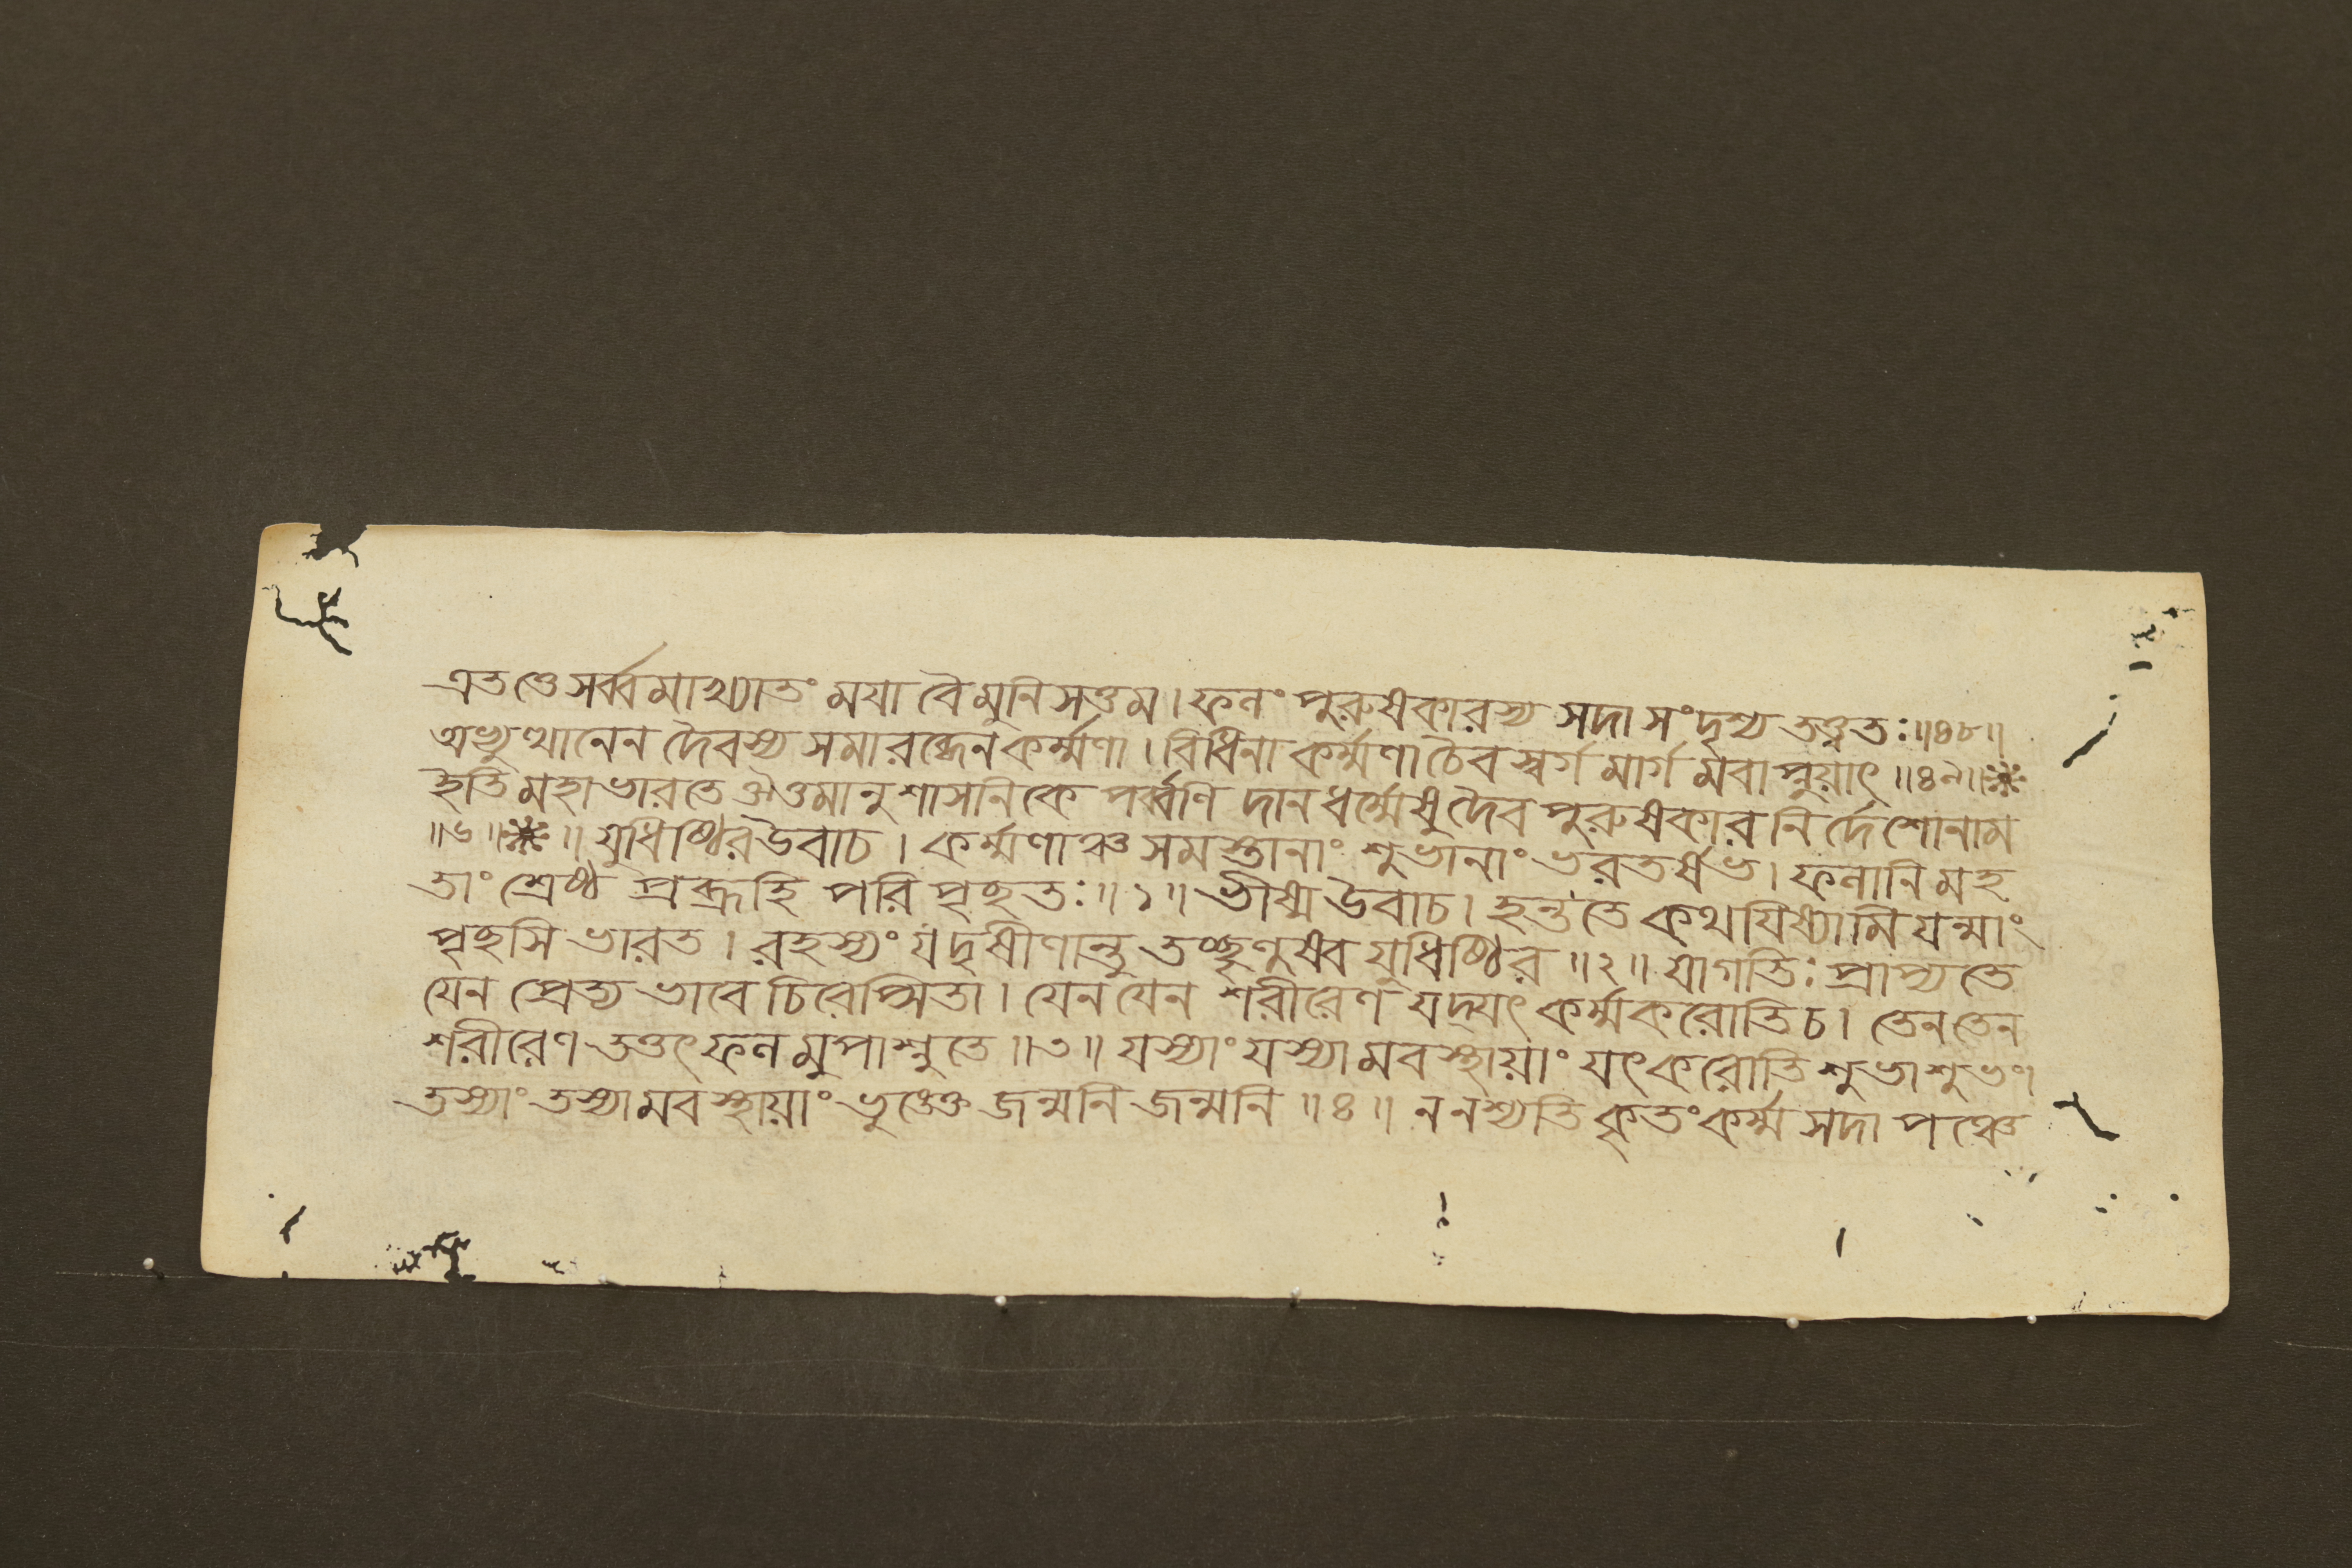 এতত্তে সর্ব্বমাখ্যাতং ময়া বৈ মুনিসত্তম। ফলং পুরুষকারস্য সদা সংদৃশ্য তত্ত্বতঃ॥৪৮॥
অভ্যুত্থানেন দৈবস্য সমারব্ধেন কর্ম্মণা। বিধিনা কর্ম্মণা চৈব স্বর্গমার্গমবাপ্নুয়াৎ॥৪৯॥※
ইতি মহাভারতে ঔত্তমানুশাসনিকে পর্ব্বণি দানধর্ম্মেষু দৈবপুরুষকারনির্দেশোনাম
॥৬॥※॥ যুধিষ্ঠির উবাচ। কর্ম্মণাঞ্চ সমস্তানাং শুভানাং ভরতর্ষভ। ফলানি মহ
তাং শ্রেষ্ঠ প্রব্রূহি পরিপৃচ্ছতঃ॥১॥ ভীষ্ম উবাচ। হন্ত তে কথয়িষ্যামি যন্মাং
পৃচ্ছসি ভারত। রহস্যং যদৃষীণান্তু তচ্ছৃণুষ্ব যুধিষ্ঠির॥২॥ যা গতিঃ প্রাপ্যতে
যেন প্রেত্যভাবে চিরেপ্সিতা। যেন যেন শরীরেণ যদ্যৎ কর্ম্ম করোতি চ। তেন তেন
শরীরেণ তত্তৎ ফলমুপাশ্নুতে॥৩॥ যস্যাং যস্যামবস্থায়াং যৎ করোতি শুভাশুভং।
তস্যাং তস্যামবস্থায়াং ভুঙ্ক্তে জন্মনি জন্মনি॥৪॥ ন নশ্যতি কৃতং কর্ম্ম সদা পঞ্চে